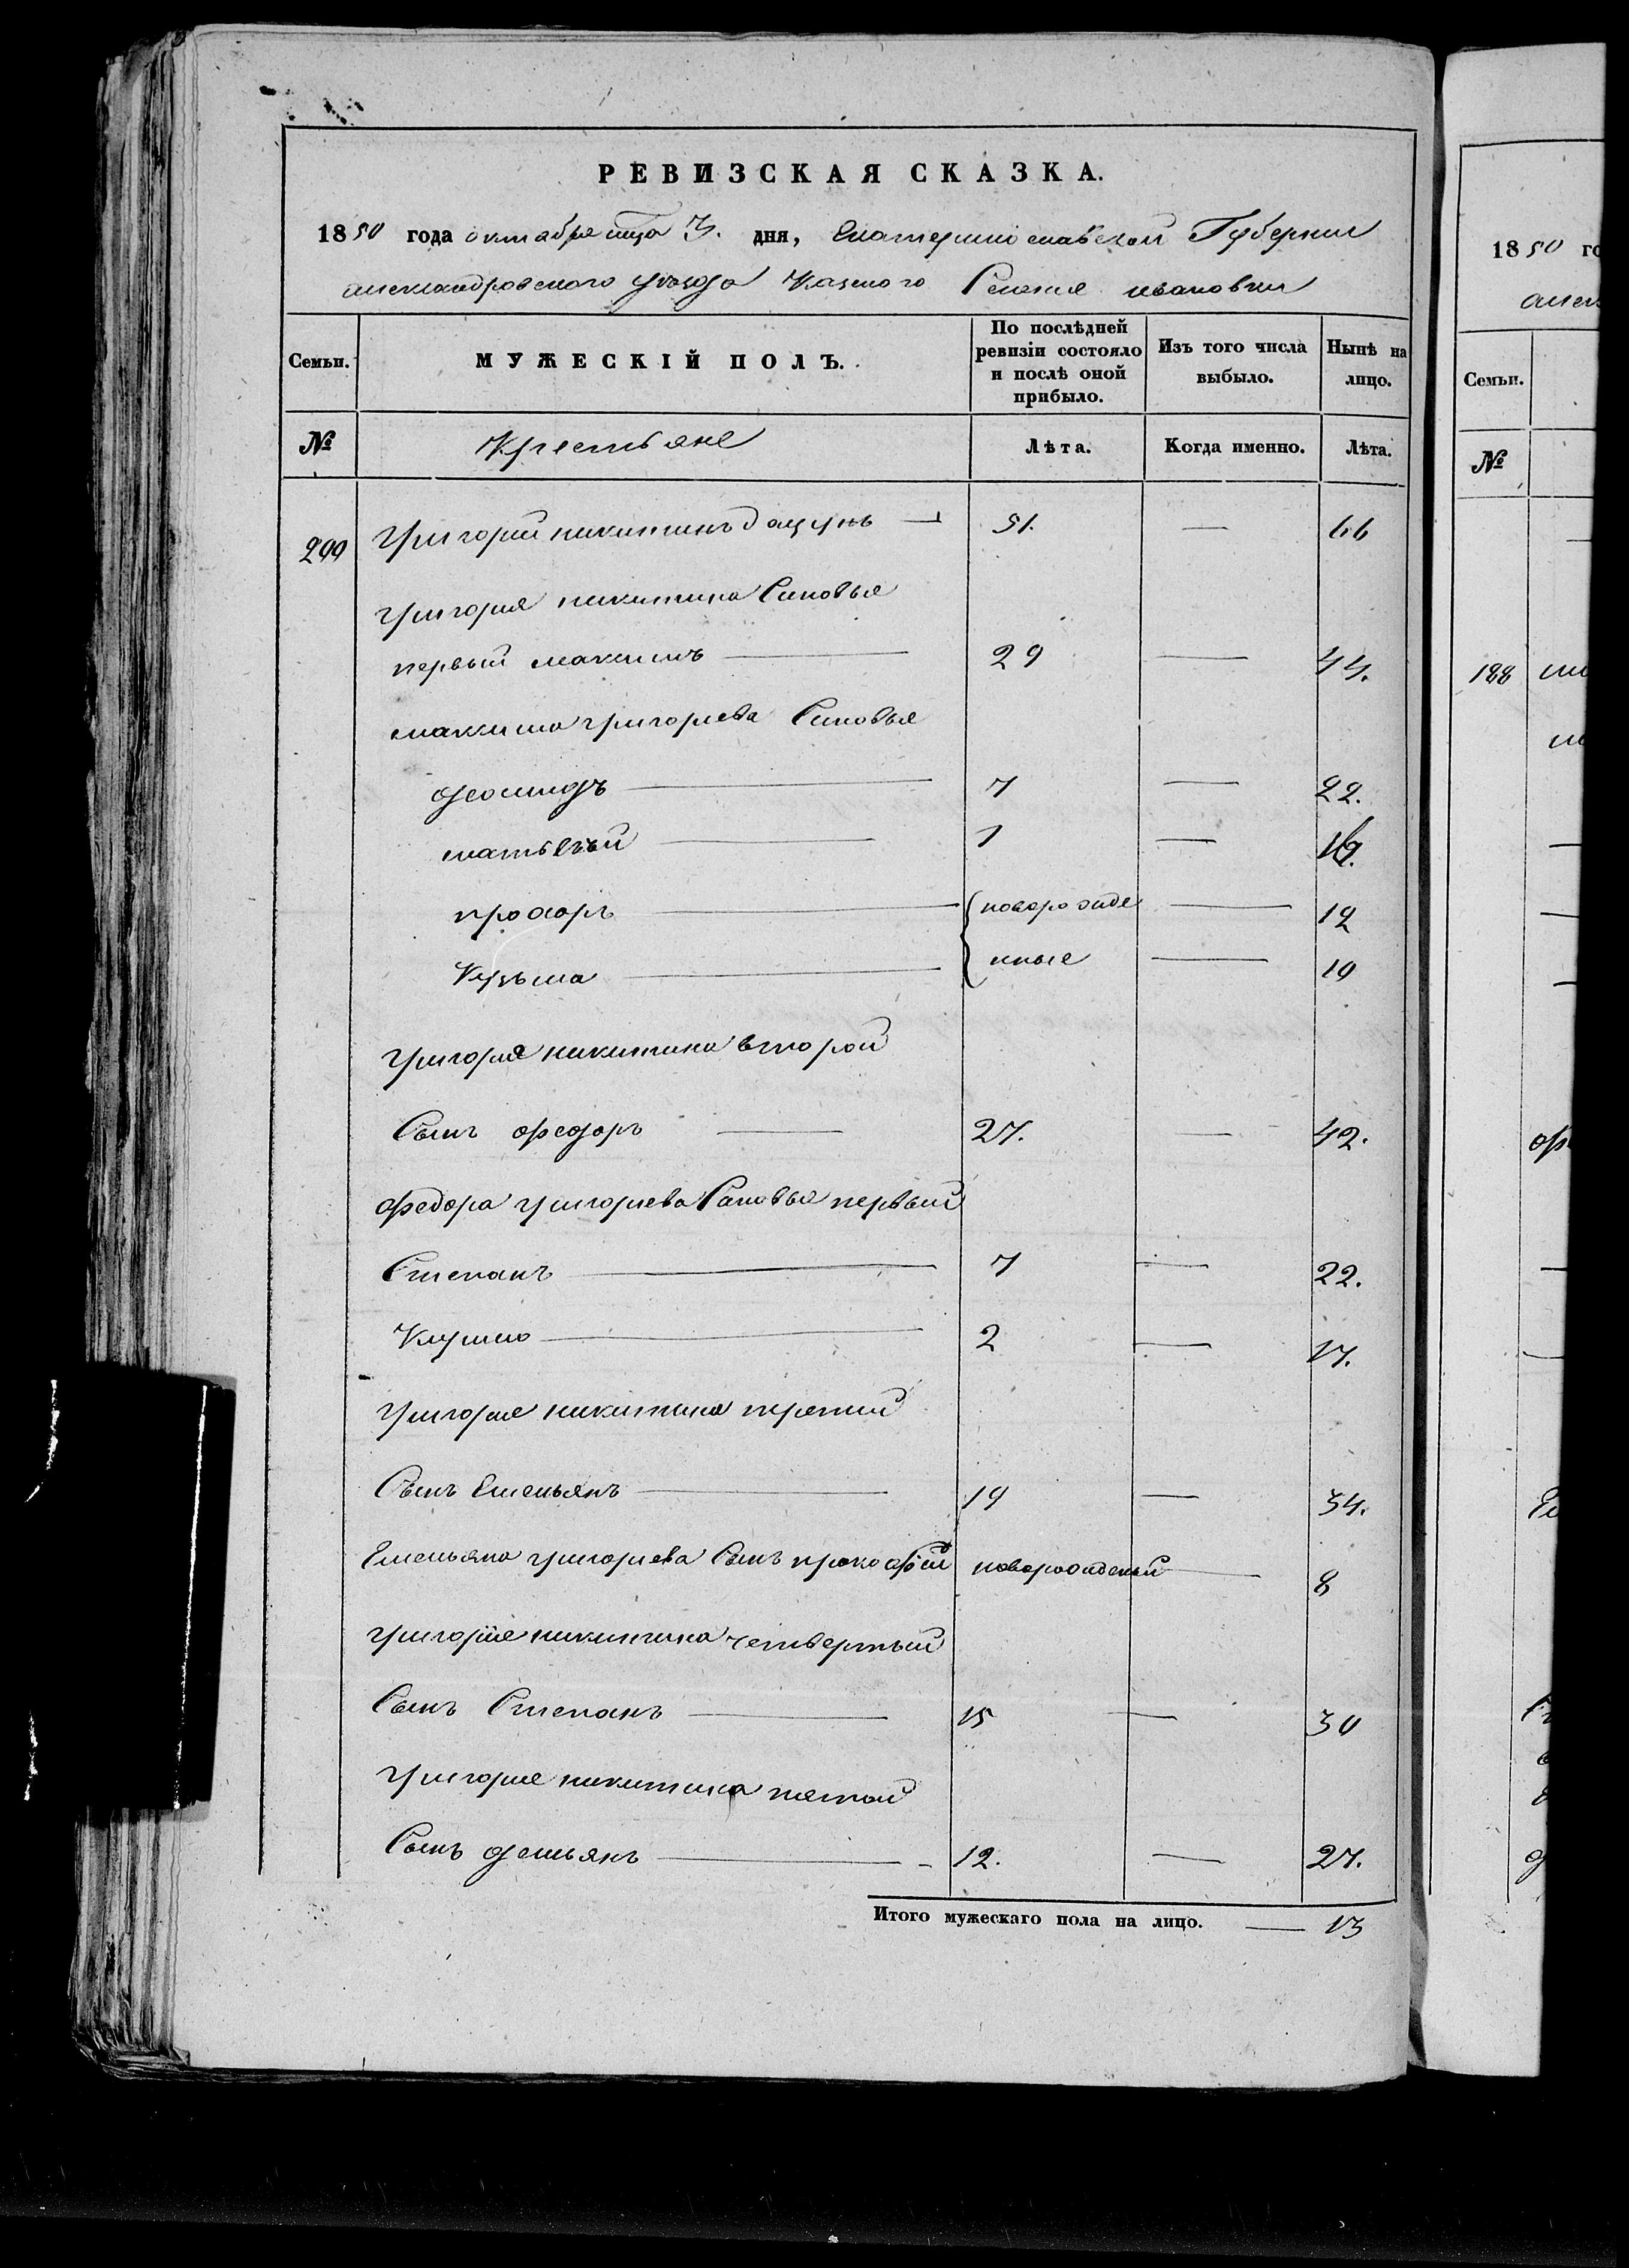 РЕВИЗСКАЯ СКАЗКА.
1850 года октября мца 3. дня, Екатеринославской Губернии
александровского уезда Казеного Селения ивановки
Семьи. МУЖЕСКІЙ ПОЛЪ. По послѣдней ревизіи состояло и послѣ оной прибыло. Изъ того числа выбыло. Нынѣ на лицо.
№ Крестьяне Лѣта. Когда именно. Лѣта.
григорий никитинъ 51. — 66
григория никитина Сыновья
первый максимъ 29 — 44.
максима григориева Сыновья
7 — 22.
матвѣй 1 — 16.
прохоръ новорожде — 12
Кузьма нные — 10
григория никитина второй
Сынъ федоръ 27. — 42.
федора григориева Сыновья первый
Степанъ 7 — 22.
2 — 17.
григория никитина третий
Сынъ Емельянъ 19 — 34.
Емельяна григориева Сынъ прокофий новорожденый — 8
григорія никитина четвертый
Сынъ Степанъ 15 — 30
григория никитина пятой
Сынъ демьянъ 12. — 27.
Итого мужескаго пола на лицо. — 13
1850 го
Семьи.
№
188